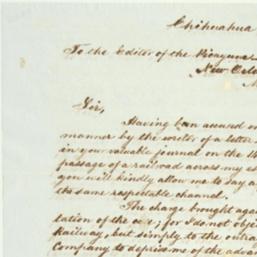 Chihuahua
To the Editor of the Picayune
New Orle
Sir,
Having been accused in
manner by the writer of a letter
in your valuable journal on the 14
passage of a railroad across my es
you will kindly allow me to say a
the same respectable channel.
The charge brought aga
tation of the
for I do not obj
Railway, but simply to the outra
Company to deprive me of the advan